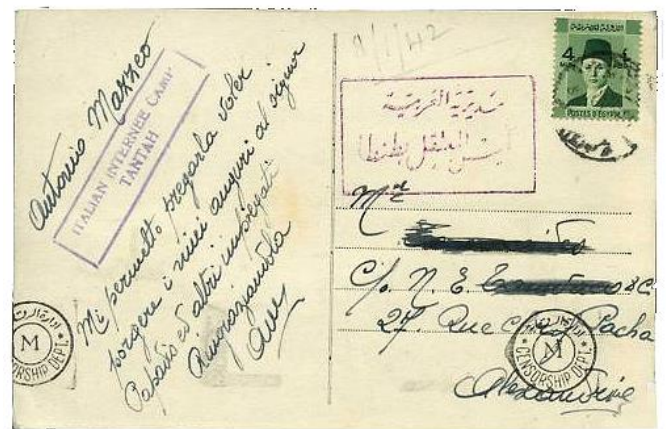 Antonio Mazzeo
ITALIAN INTERNEE CAMP
TANTAH
Mi permetto pregarla voler
porgere i miei auguri al signor
ed altri impiegati
Ringraziandola
M
CENSORSHIP DEPT.
8/1/42
مديرية الغربية
المعتقل بطنطا
4
POSTES D'EGYPTE
C/o. N. E.
27, Rue Pacha
M
CENSORSHIP DEPT.
Alexandrie